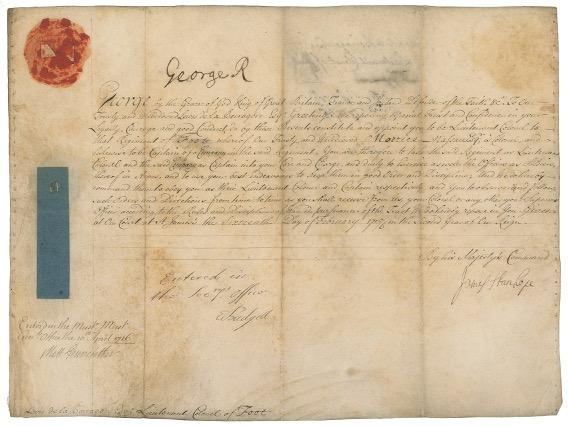 George R
George by the Grace of God King of Great Britain, France and Ireland Defender of the Faith &c To Our
Trusty and Welbeloved Lewis de la Esq Greeting We reposing especial Trust and Confidence in your
Loyalty Courage and good Conduct do by these Presents constitute and appoint you to be Lieutenant Colonel to
that Regiment of Foot whereof Our Trusty and Welbeloved Morrice Nassau Esq is Colonel, and
likewise to be Captain of a Company in the You are therefore to take the said Regiment as Lieutenant
Colonel and the said Company as Captain into your Care and Charge, and duly to Exercise as well the Officers as Soldiers
thereof in Arms, and to use your best Endeavours to keep them in good Order and Discipline, And We do hereby
command them to obey you as their Lieutenant Colonel and Captain respectively, and you to observe and follow
such Orders and Directions from time to time as you shall receive from Us, your Colonel or any other your Superior
Officer according to the Rules and Discipline of War in pursuance of the Trust We hereby repose in you Given
at Our Court at St James's the Sixteenth Day of February 1715/6 in the Second Year of Our Reign
By his Majesty's Command
James Stanhope
Entered in
the Secrys Office
Entred in the Must Mast
Office the 10th April 1716
Lewis de la Esq Lieutenant Colonel of Foot